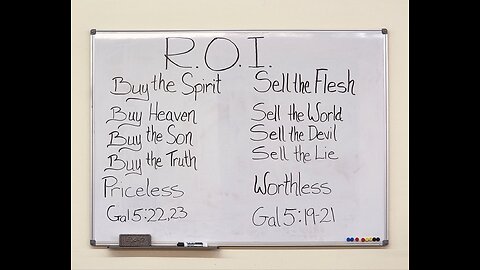 R.O.I.
Buy the Spirit
Buy Heaven
Buy the Son
Buy the Truth
Priceless
Gal 5:22,23
Sell the Flesh
Sell the World
Sell the Devil
Sell the Lie
Worthless
Gal 5:19-21